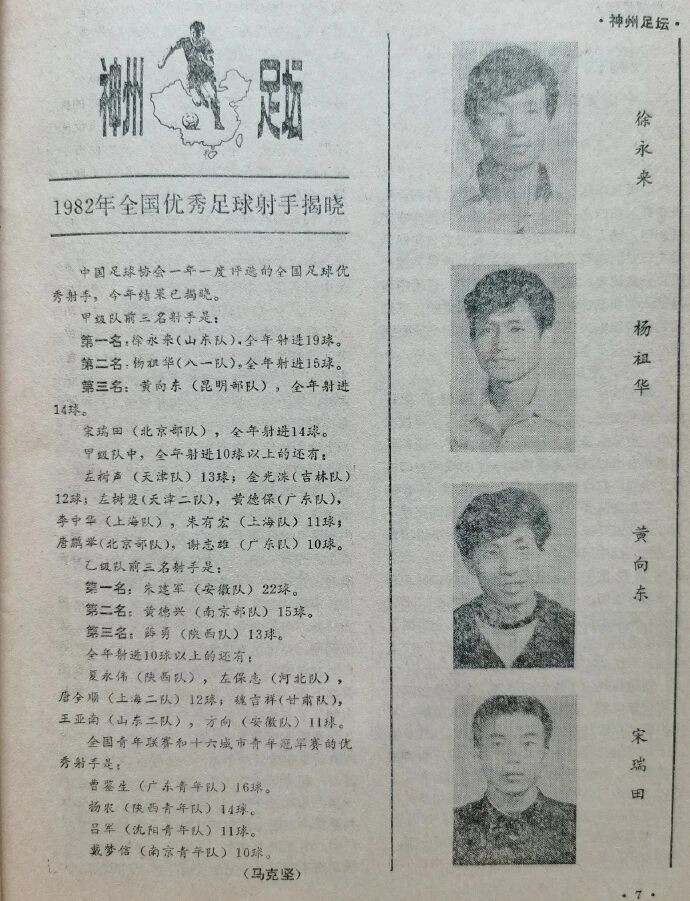 ·神州足坛·
神州足坛
1982年全国优秀足球射手揭晓
中国足球协会一年一度评选的全国足球优
秀射手，今年结果已揭晓。
甲级队前三名射手是：
第一名：徐永来（山东队），全年射进19球。
第二名：杨祖华（八一队），全年射进15球。
第三名：黄向东（昆明部队），全年射进
14球。
宋瑞田（北京部队），全年射进14球。
甲级队中，全年射进10球以上的还有：
左树声（天津队）13球；金光洙（吉林队）
12球；左树发（天津二队），黄德保（广东队），
李中华（上海队），朱有宏（上海队）11球；
唐鹏举（北京部队），谢志雄（广东队）10球。
乙级队前三名射手是：
第一名：朱建军（安徽队）22球。
第二名：黄德兴（南京部队）15球。
第三名：薛勇（陕西队）13球。
全年射进10球以上的还有：
夏永伟（陕西队），左保志（河北队），
唐全顺（上海二队）12球；魏吉祥（甘肃队），
王亚南（山东二队），方向（安徽队）11球。
全国青年联赛和十六城市青年冠军赛的优
秀射手是：
曹鉴生（广东青年队）16球。
杨农（陕西青年队）14球。
吕军（沈阳青年队）11球。
戴梦信（南京青年队）10球。
（马克坚）
徐永来
杨祖华
黄向东
宋瑞田
·7·